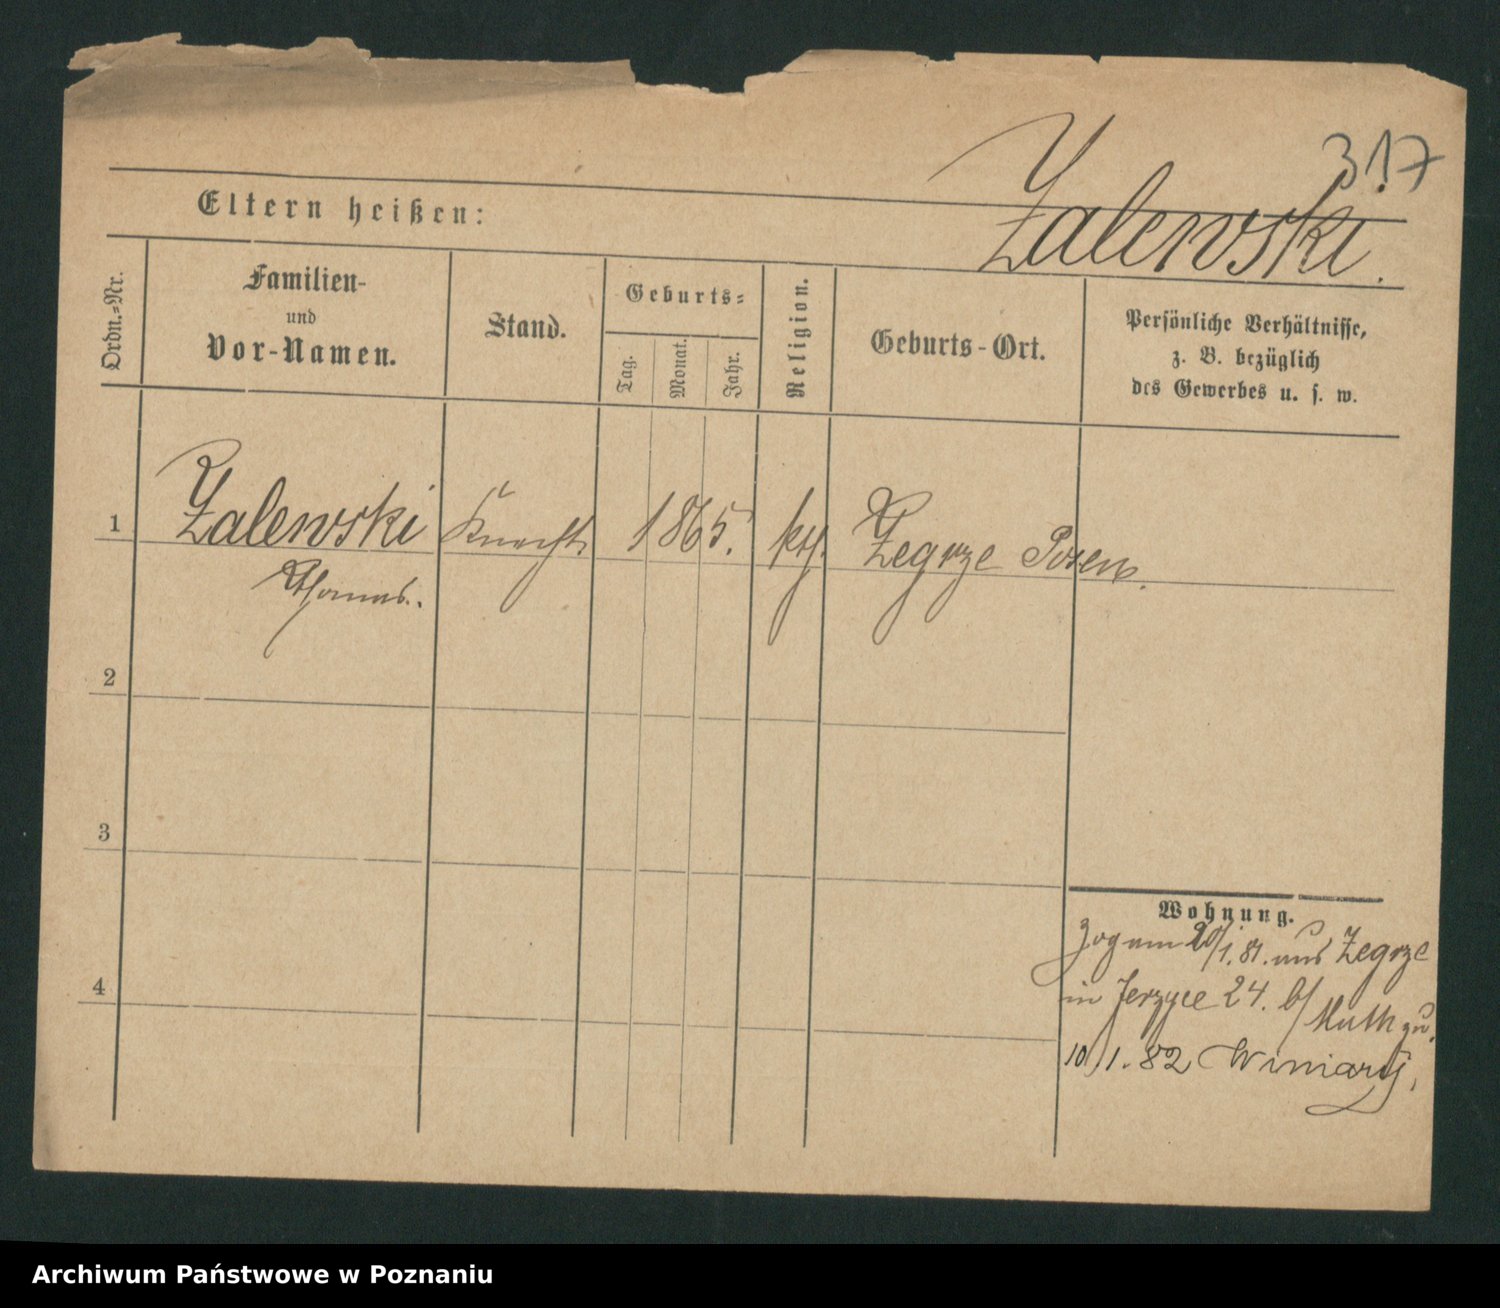 317
Zalewski.
Eltern heißen:
Ordn.=Nr.
Familien-
und
Vor-Namen.
Stand.
Geburts=
Tag.
Monat.
Jahr.
Religion.
Geburts-Ort.
Persönliche Verhältnisse,
z. B. bezüglich
des Gewerbes u. s. w.
1 Zalewski Knecht 1865. kth. Zegrze Posen.
Thomas.
2
3
4
Wohnung.
Zog am 20/1.81. aus Zegrze
in Jerzyce 24. b/ Muth zu.
10/1.82 Winiary,
Archiwum Państwowe w Poznaniu